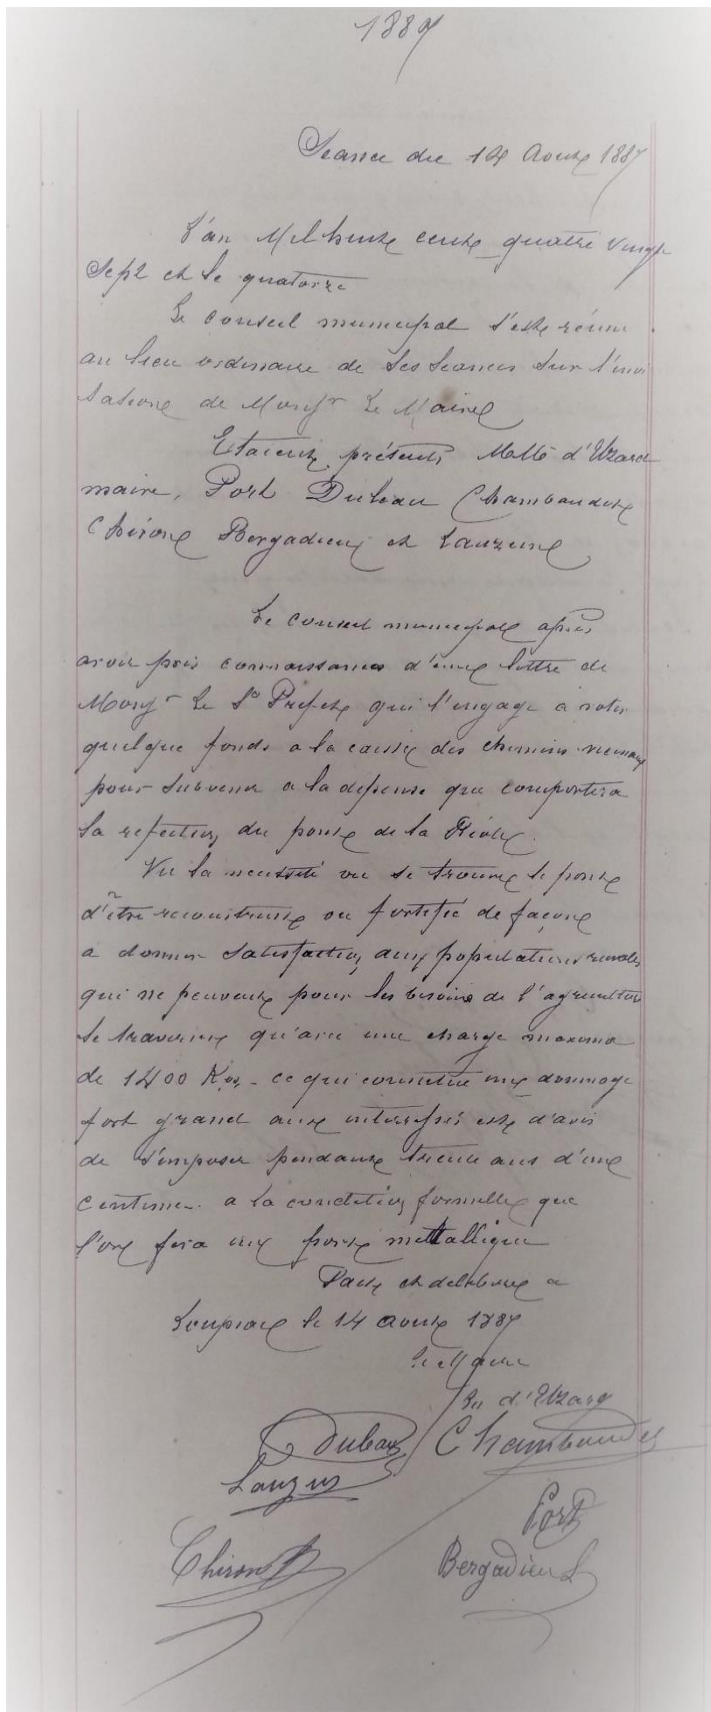 1887
Séance du 14 Août 1887
L'an Mil huit cent quatre vingt
Sept et le quatorze
Le conseil municipal s'est réuni
au lieu ordinaire de ses séances sur l'invi
tation de Monsr Le Maire
Etaient présents Mallé d'Uzard
maire, Port Dubeau Chambaudet
Chiron Bergadieu et Lauzun
Le conseil municipal après
avoir pris connaissance d'une lettre de
Monsr Le Ss Préfet qui l'engage a voter
quelque fonds a la caisse des chemins vicinaux
pour subvenir a la dépense que comportera
la refection du pont de la Réole.
Vu la necessité ou se trouve le pont
d'être reconstruit ou fortifié de façon
a donner satisfaction aux populations rurales
qui ne peuvent pour les besoins de l'agriculture
le traverser qu'avec une charge maxima
de 1400 Kos - ce qui constitue un dommage
fort grand aux intéressés est d'avis
de s'imposer pendant trente ans d'un
centime. a la condition formelle que
l'on fera un pont mettallique
Fait et délibéré a
Loupiac le 14 août 1887
Le Maire
d'Uzard
Dubeau Chambaudet
Lauzun
Port
Chiron
Bergadieu